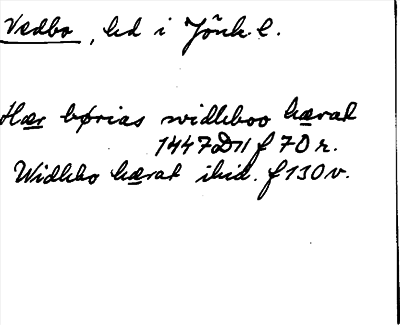 Vedbo, hd i Jönk. l.
Hær børias widhboo hærat
1447 D 11 f 70 r.
Widhbo hærat ibid. f 130 v.